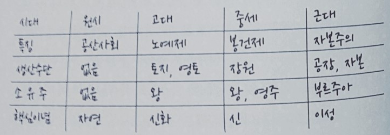 시대 원시 고대 중세 근대
특징 공산사회 노예제 봉건제 자본주의
생산수단 없음 토지, 영토 장원 공장, 자본
소유주 없음 왕 왕, 영주 부르주아
핵심이념 자연 신화 신 이성